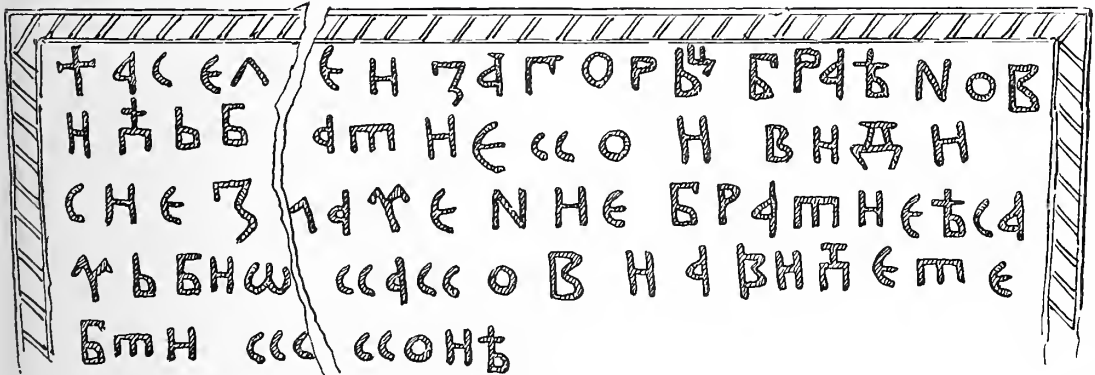 † А СЕЛ ЕИ ЗАГОРЬЦ БРАѢNОВ
ИЋЬ Б АТИЕ КО И ВИДИ
СИЕ ЗЛАМЕNИЕ БРАТИЕ Ѣ СА
МЬ БИѠ КАКО ВИ А ВИ ЋЕТЕ
БТИ К КО И Ѣ